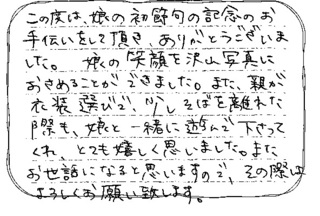 この度は、娘の初節句の記念のお
手伝いをして頂き ありがとうございま
した。 娘の笑顔を沢山写真に
おさめることができました。また、親が
衣装選びで、少しそばを離れた
際も、娘と一緒に遊んで下さって
くれ、とても嬉しく思いました。また
お世話になると思いますので、その際は
よろしくお願い致します。